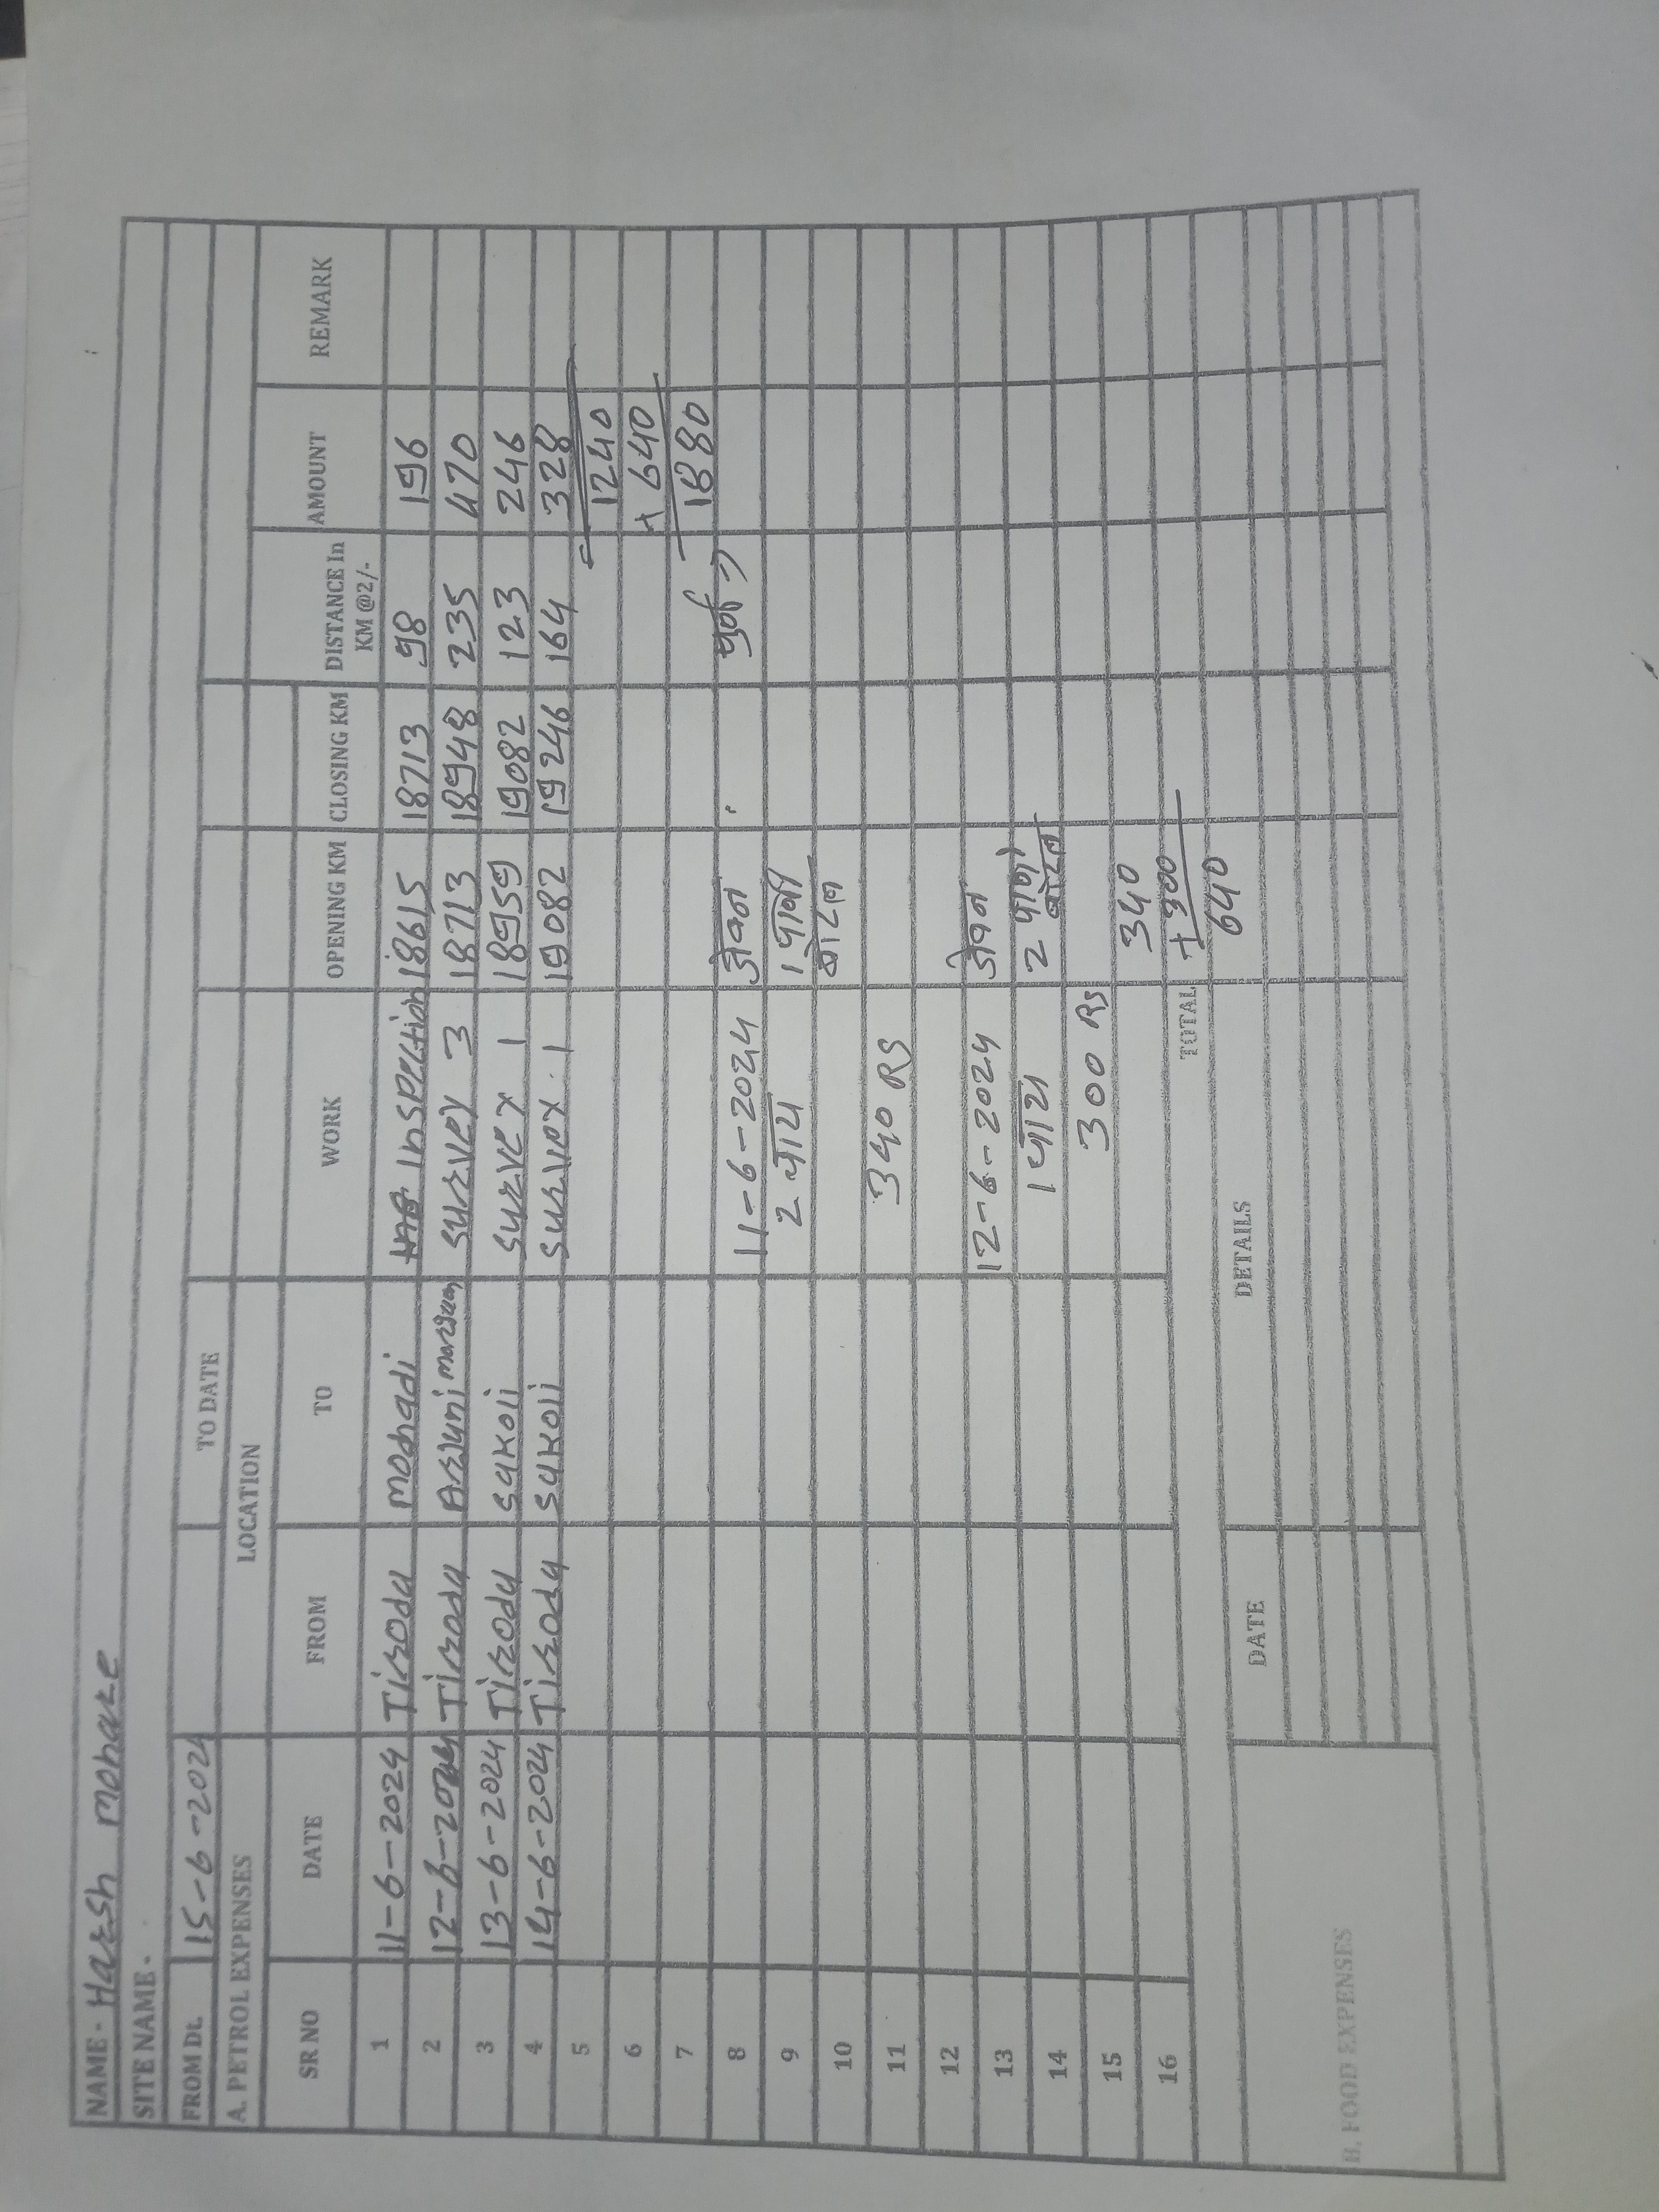 NAME - Harsh mohare
SITE NAME -
FROM Dt. 15-6-2024 TO DATE
A. PETROL EXPENSES LOCATION
SR NO DATE FROM TO WORK OPENING KM CLOSING KM DISTANCE In KM @2/- AMOUNT REMARK
1 11-6-2024 Tiroda mohadi Inspection 18615 18713 98 196
2 12-6-2024 Tiroda Arjuni survey 3 18713 18948 235 470
3 13-6-2024 Tiroda sakoli survey 1 18959 19082 123 246
4 14-6-2024 Tiroda sakoli survey 1 19082 19246 164 328
5 1240
6 + 640
7 1880
8 11-6-2024 जेवन
9 2 चाय 1 पाणी
10 बोटल
11 340 RS
12
13 12-6-2024 जेवन
14 1 चाय 2 पाणी बोटल
15 300 RS 340
16 + 300
TOTAL 640
B. FOOD EXPENSES DATE DETAILS